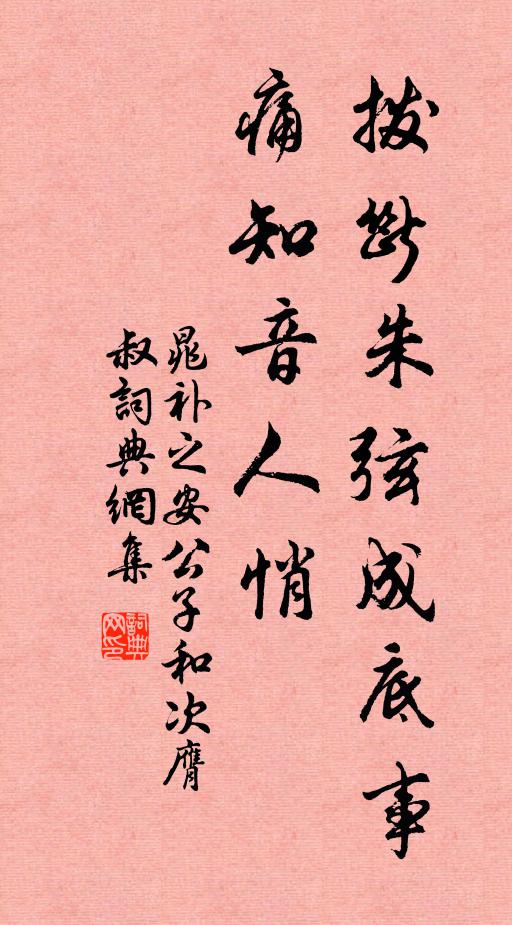 拨断朱弦成底事
痛知音人悄
晁补之安公子和次膺
叔词典網集
詞典
网印